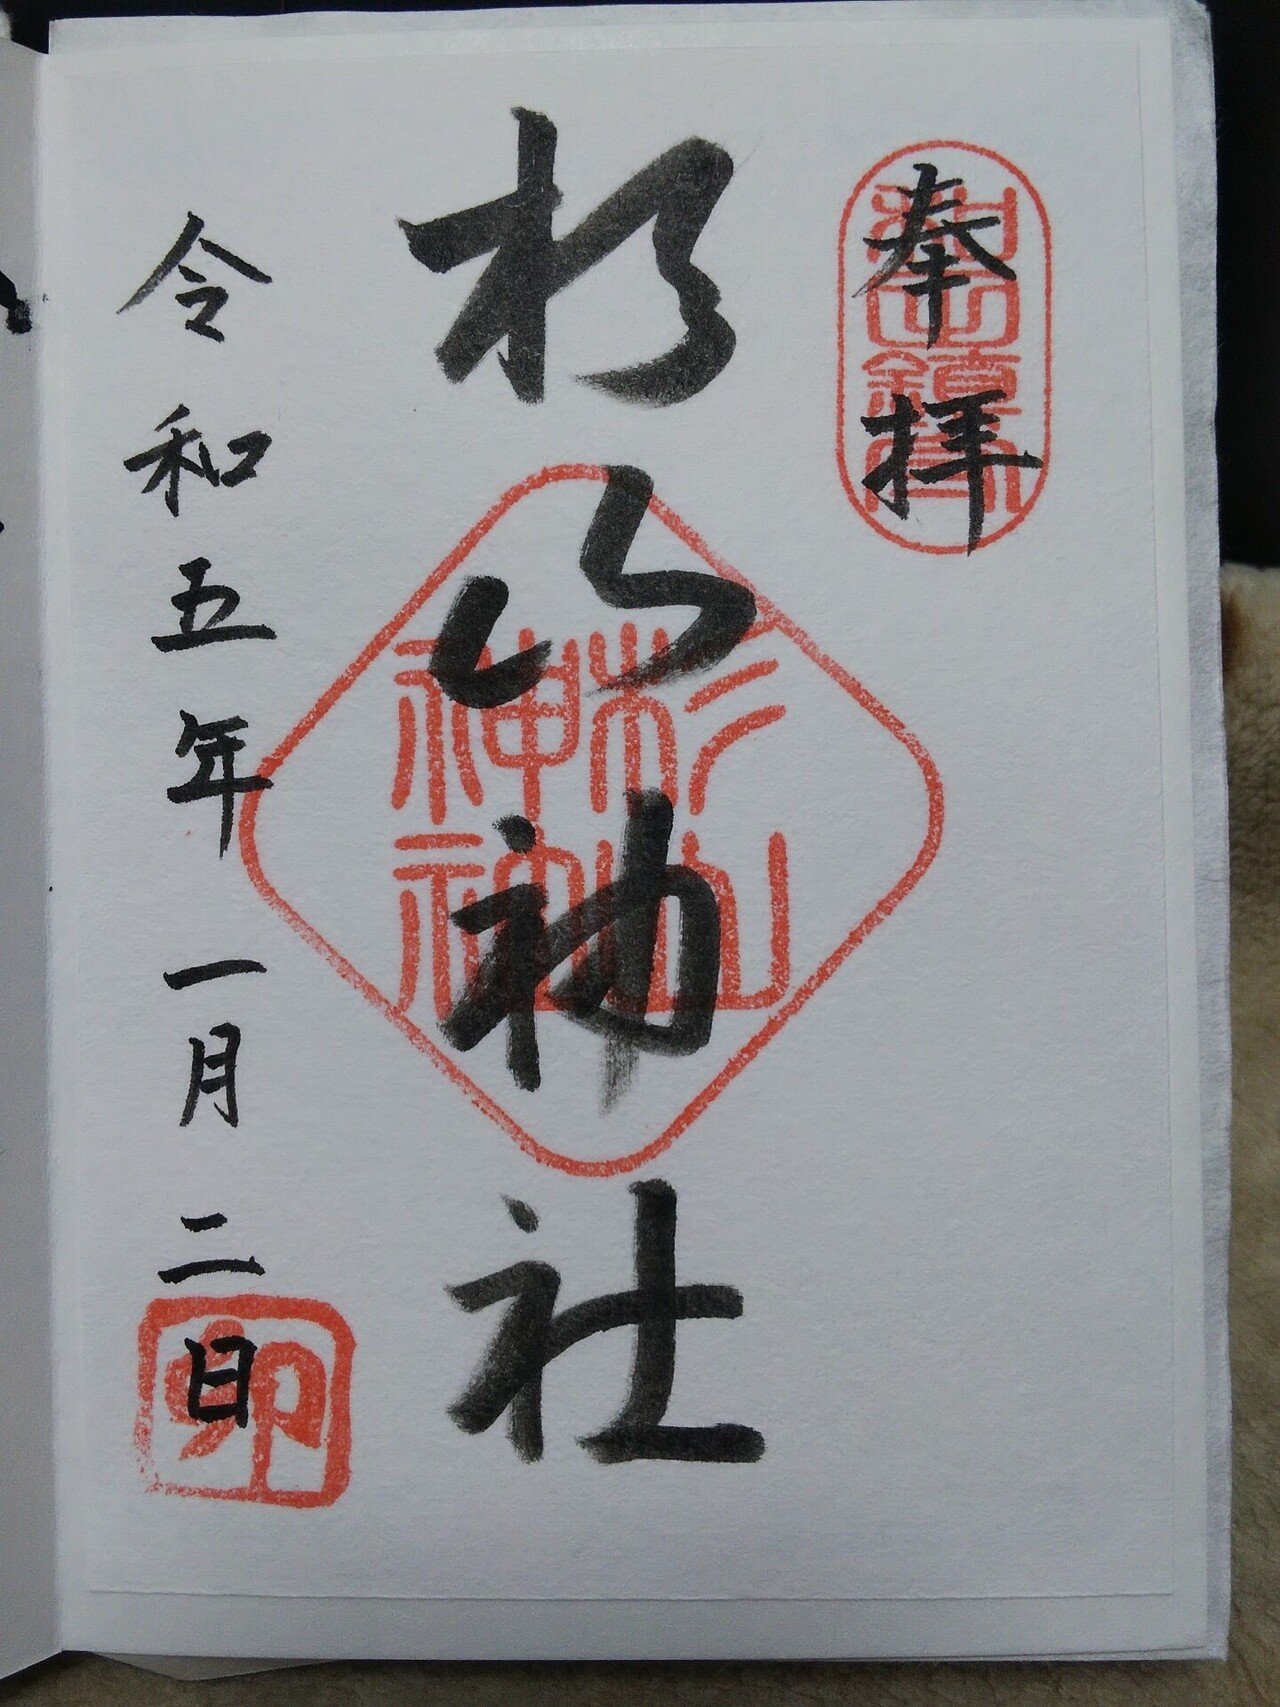 奉拝
杉山神社
杉山神社
令和五年一月二日
卯